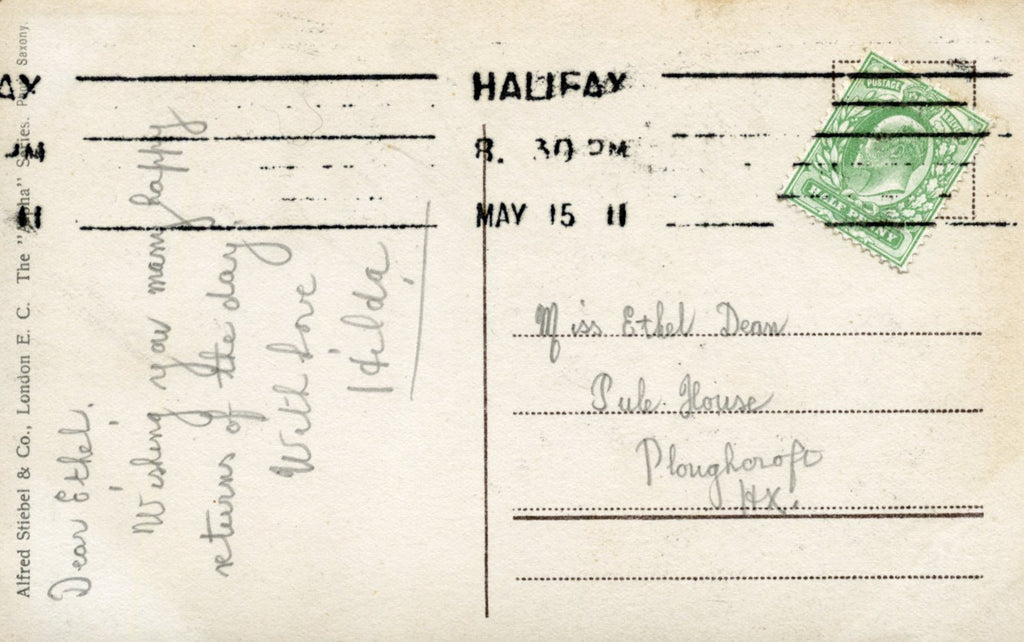 Alfred Stiebel & Co., London E. C. The "Alpha" Series. Saxony.
Dear Ethel.
Wishing you many happy
returns of the day
With love
Hilda.
AY
PM
11
HALIFAX
8. 30 PM
MAY 15 11
POSTAGE
HALF PENNY
Miss Ethel Dean
Pule House
Ploughcroft
HX.